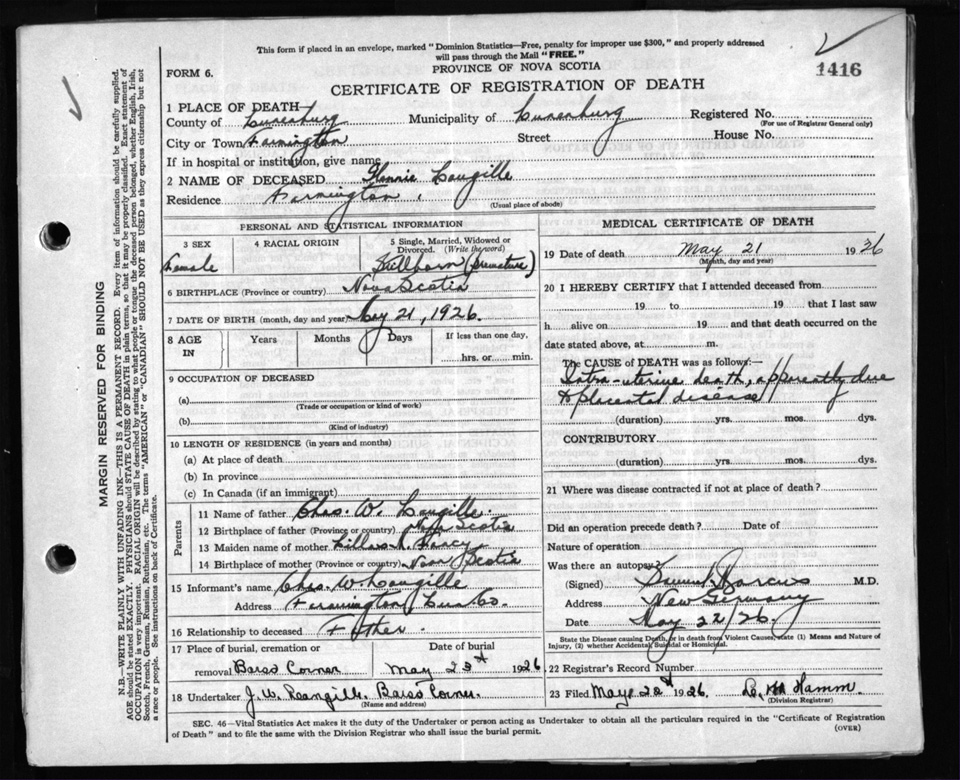 This form if placed in an envelope, marked "Dominion Statistics—Free, penalty for improper use $300," and properly addressed
will pass through the Mail "FREE."
PROVINCE OF NOVA SCOTIA
1416
FORM 6.
CERTIFICATE OF REGISTRATION OF DEATH
1 PLACE OF DEATH—
County of Lunenburg Municipality of Lunenburg Registered No.
(For use of Registrar General only)
City or Town Farmington Street House No.
If in hospital or institution, give name
2 NAME OF DECEASED Langille
Residence Farmington.
(Usual place of abode)
PERSONAL AND STATISTICAL INFORMATION
3 SEX
Female
4 RACIAL ORIGIN
5 Single, Married, Widowed or
Divorced. (Write the word)
Stillborn (premature)
6 BIRTHPLACE (Province or country) Nova Scotia
7 DATE OF BIRTH (month, day and year) May 21, 1926.
8 AGE
IN
Years Months Days
If less than one day,
hrs. or min.
9 OCCUPATION OF DECEASED
(a)
(Trade or occupation or kind of work)
(b)
(Kind of industry)
10 LENGTH OF RESIDENCE (in years and months)
(a) At place of death
(b) In province
(c) In Canada (if an immigrant)
Parents
11 Name of father Chas. W. Langille
12 Birthplace of father (Province or country) Nova Scotia
13 Maiden name of mother
14 Birthplace of mother (Province or country) Nova Scotia
15 Informant's name Chas. W. Langille
Address Farmington Lun Co.
16 Relationship to deceased Father.
17 Place of burial, cremation or
removal Barss Corner
Date of burial
May 23rd 1926
18 Undertaker J. W. Barss Corner.
(Name and address)
MEDICAL CERTIFICATE OF DEATH
19 Date of death May 21 1926
(Month, day and year)
20 I HEREBY CERTIFY that I attended deceased from
19 to 19 that I last saw
h alive on 19 and that death occurred on the
date stated above, at m.
The CAUSE of DEATH was as follows:—
Intra-uterine death, apparently due
to placental disease
(duration) yrs. mos. dys.
CONTRIBUTORY
(duration) yrs. mos. dys.
21 Where was disease contracted if not at place of death?
Did an operation precede death? Date of
Nature of operation
Was there an autopsy?
(Signed) Marcus M.D.
Address New Germany
Date May 22/26.
State the Disease causing Death, or in death from Violent Causes, state (1) Means and Nature of
Injury, (2) whether Accidental, Suicidal or Homicidal.
22 Registrar's Record Number
23 Filed May 22d 1926 Hamm
(Division Registrar)
SEC. 46—Vital Statistics Act makes it the duty of the Undertaker or person acting as Undertaker to obtain all the particulars required in the "Certificate of Registration
of Death" and to file the same with the Division Registrar who shall issue the burial permit.
(OVER)
MARGIN RESERVED FOR BINDING
N.B.—WRITE PLAINLY WITH UNFADING INK—THIS IS A PERMANENT RECORD. Every item of information should be carefully supplied.
AGE should be stated EXACTLY. PHYSICIANS should STATE CAUSE OF DEATH in plain terms, so that it may be properly classified. Exact statement of
OCCUPATION is very important. RACIAL ORIGIN will be described by stating to what people or tongue the deceased person belonged, whether English, Irish,
Scotch, French, German, Russian, Ruthenian, etc. The terms "AMERICAN" or "CANADIAN" SHOULD NOT BE USED as they express citizenship but not
a race or people. See instructions on back of Certificate.